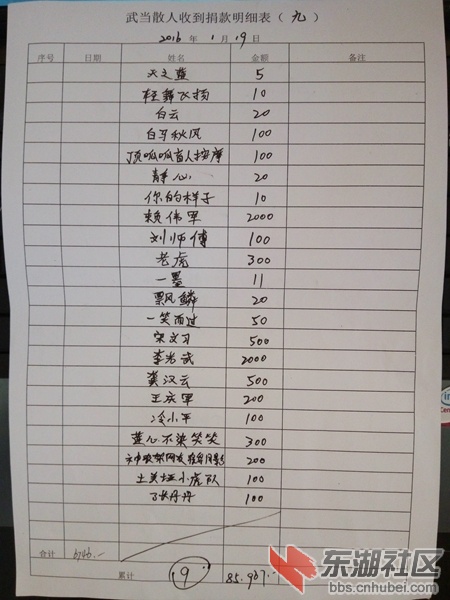 武当散人收到捐款明细表（九）
2016 年 1 月 19 日
序号 日期 姓名 金额 备注
天之蓝 5
轻舞飞扬 10
白云 20
白马秋风 100
顶呱呱盲人按摩 100
静心 20
你的样子 10
赖伟军 2000
刘师傅 100
老虎 300
一墨 11
飘风鳞 20
一笑而过 50
宋文习 500
李光武 2000
龚汉云 500
王庆军 200
冷小平 100
莲心不染笑笑 300
200
土关垭小虎队 100
张丹丹 100
合计 6746.-
累计 9 85.967.-
东湖社区
bbs.cnhubei.com